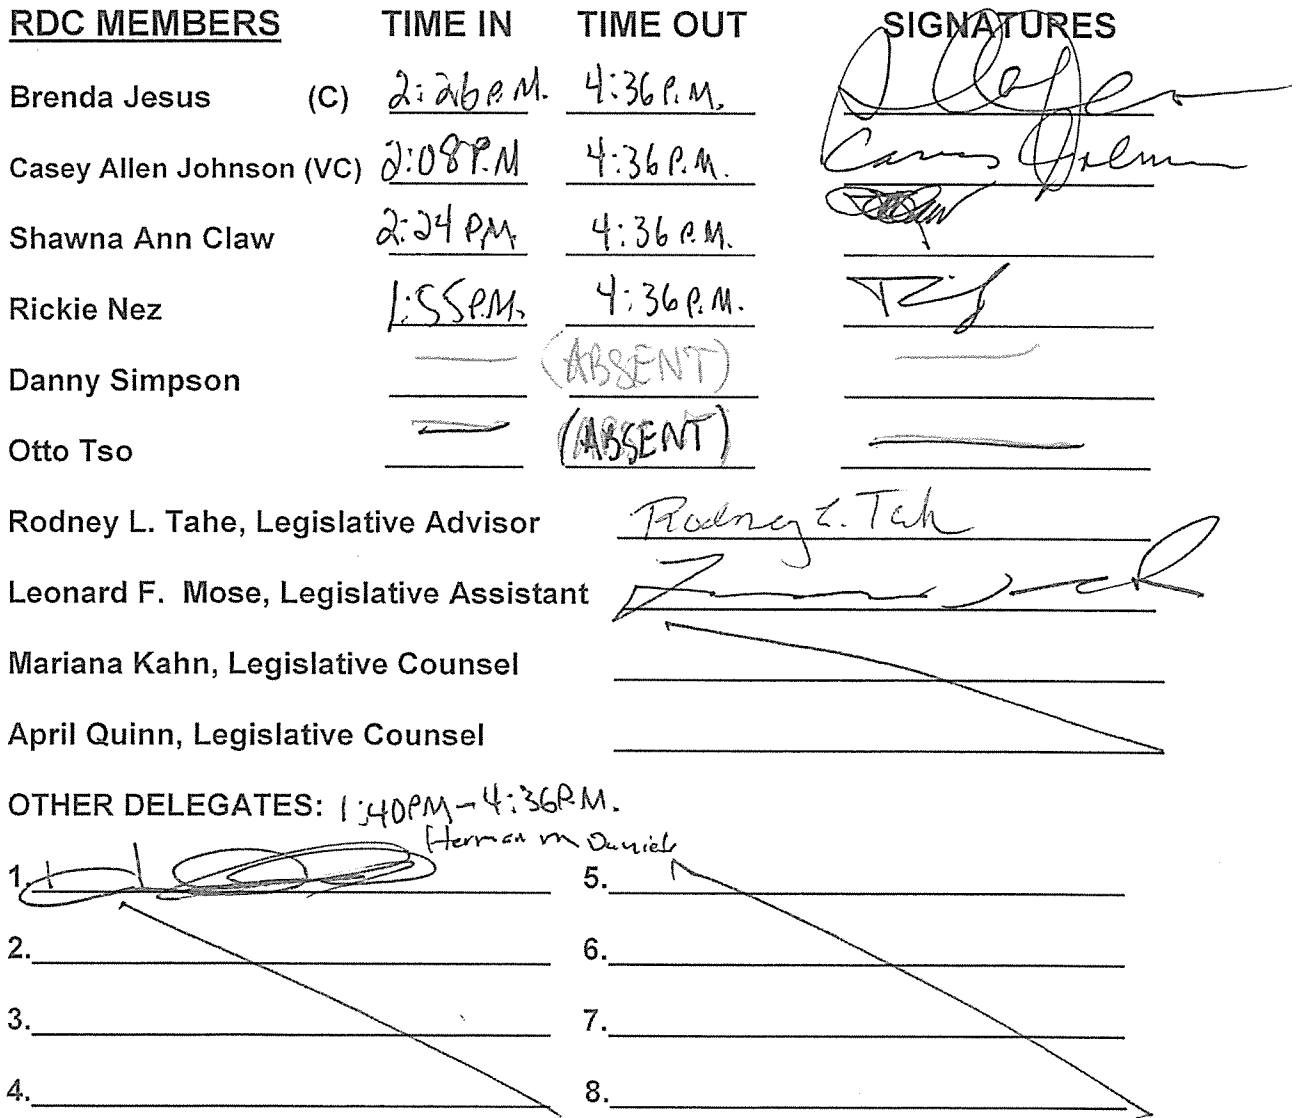 RDC MEMBERS TIME IN TIME OUT SIGNATURES
Brenda Jesus (C) 2:26 P.M. 4:36 P.M.
Casey Allen Johnson (VC) 2:08 P.M 4:36 P.M.
Shawna Ann Claw 2:24 P.M. 4:36 P.M.
Rickie Nez 1:55 P.M. 4:36 P.M.
Danny Simpson — (ABSENT) —
Otto Tso — (ABSENT) —
Rodney L. Tahe, Legislative Advisor Rodney L. Tah
Leonard F. Mose, Legislative Assistant
Mariana Kahn, Legislative Counsel
April Quinn, Legislative Counsel
OTHER DELEGATES: 1:40PM - 4:36P.M.
Herman M Daniels
1. 5.
2. 6.
3. 7.
4. 8.